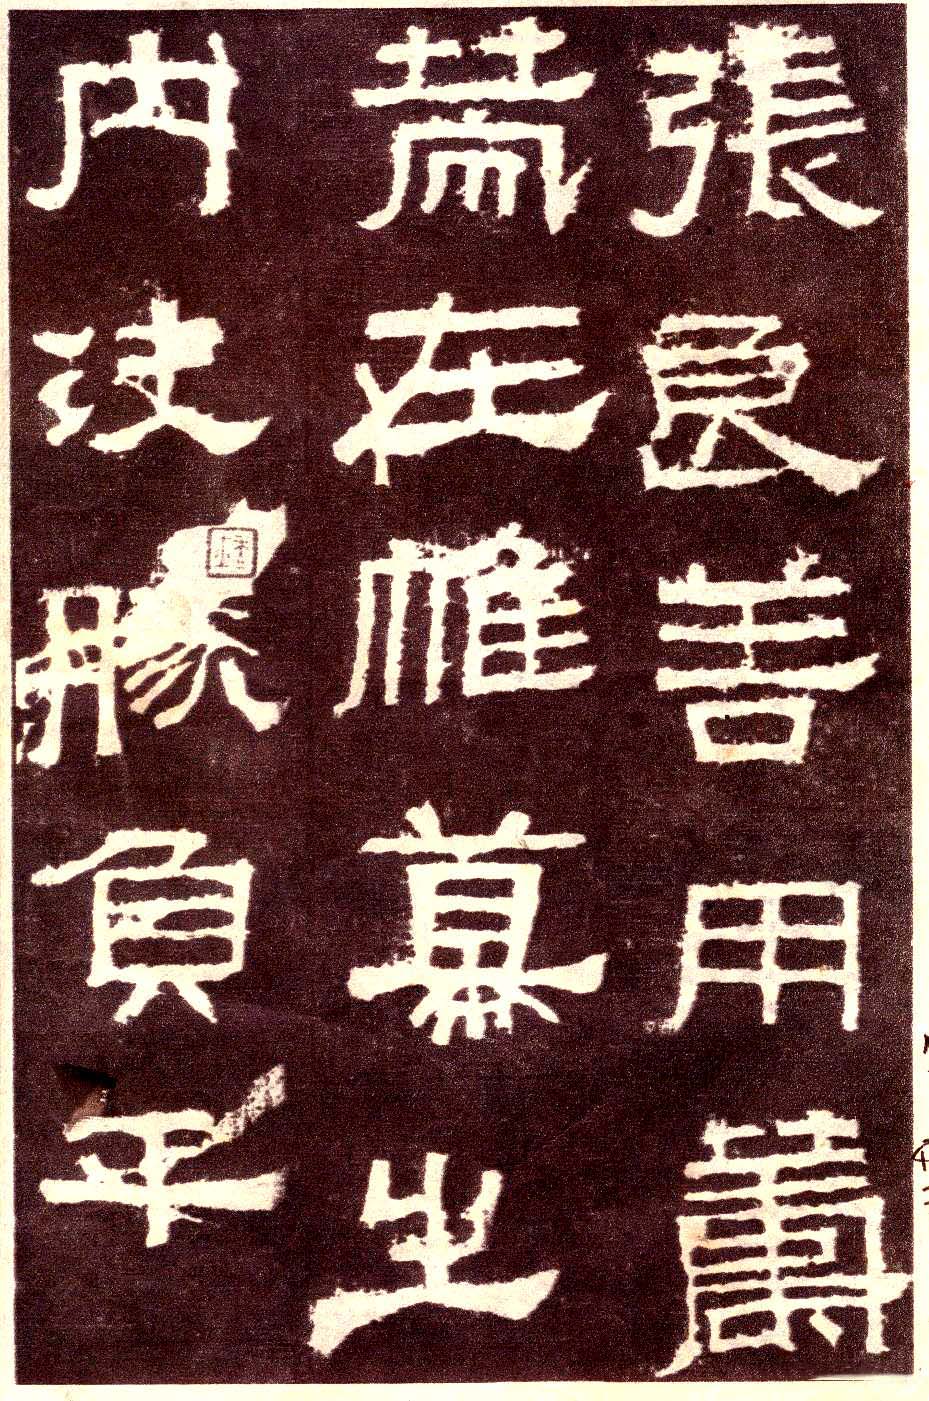 張良善用籌
策在帷幕之
内决勝負千